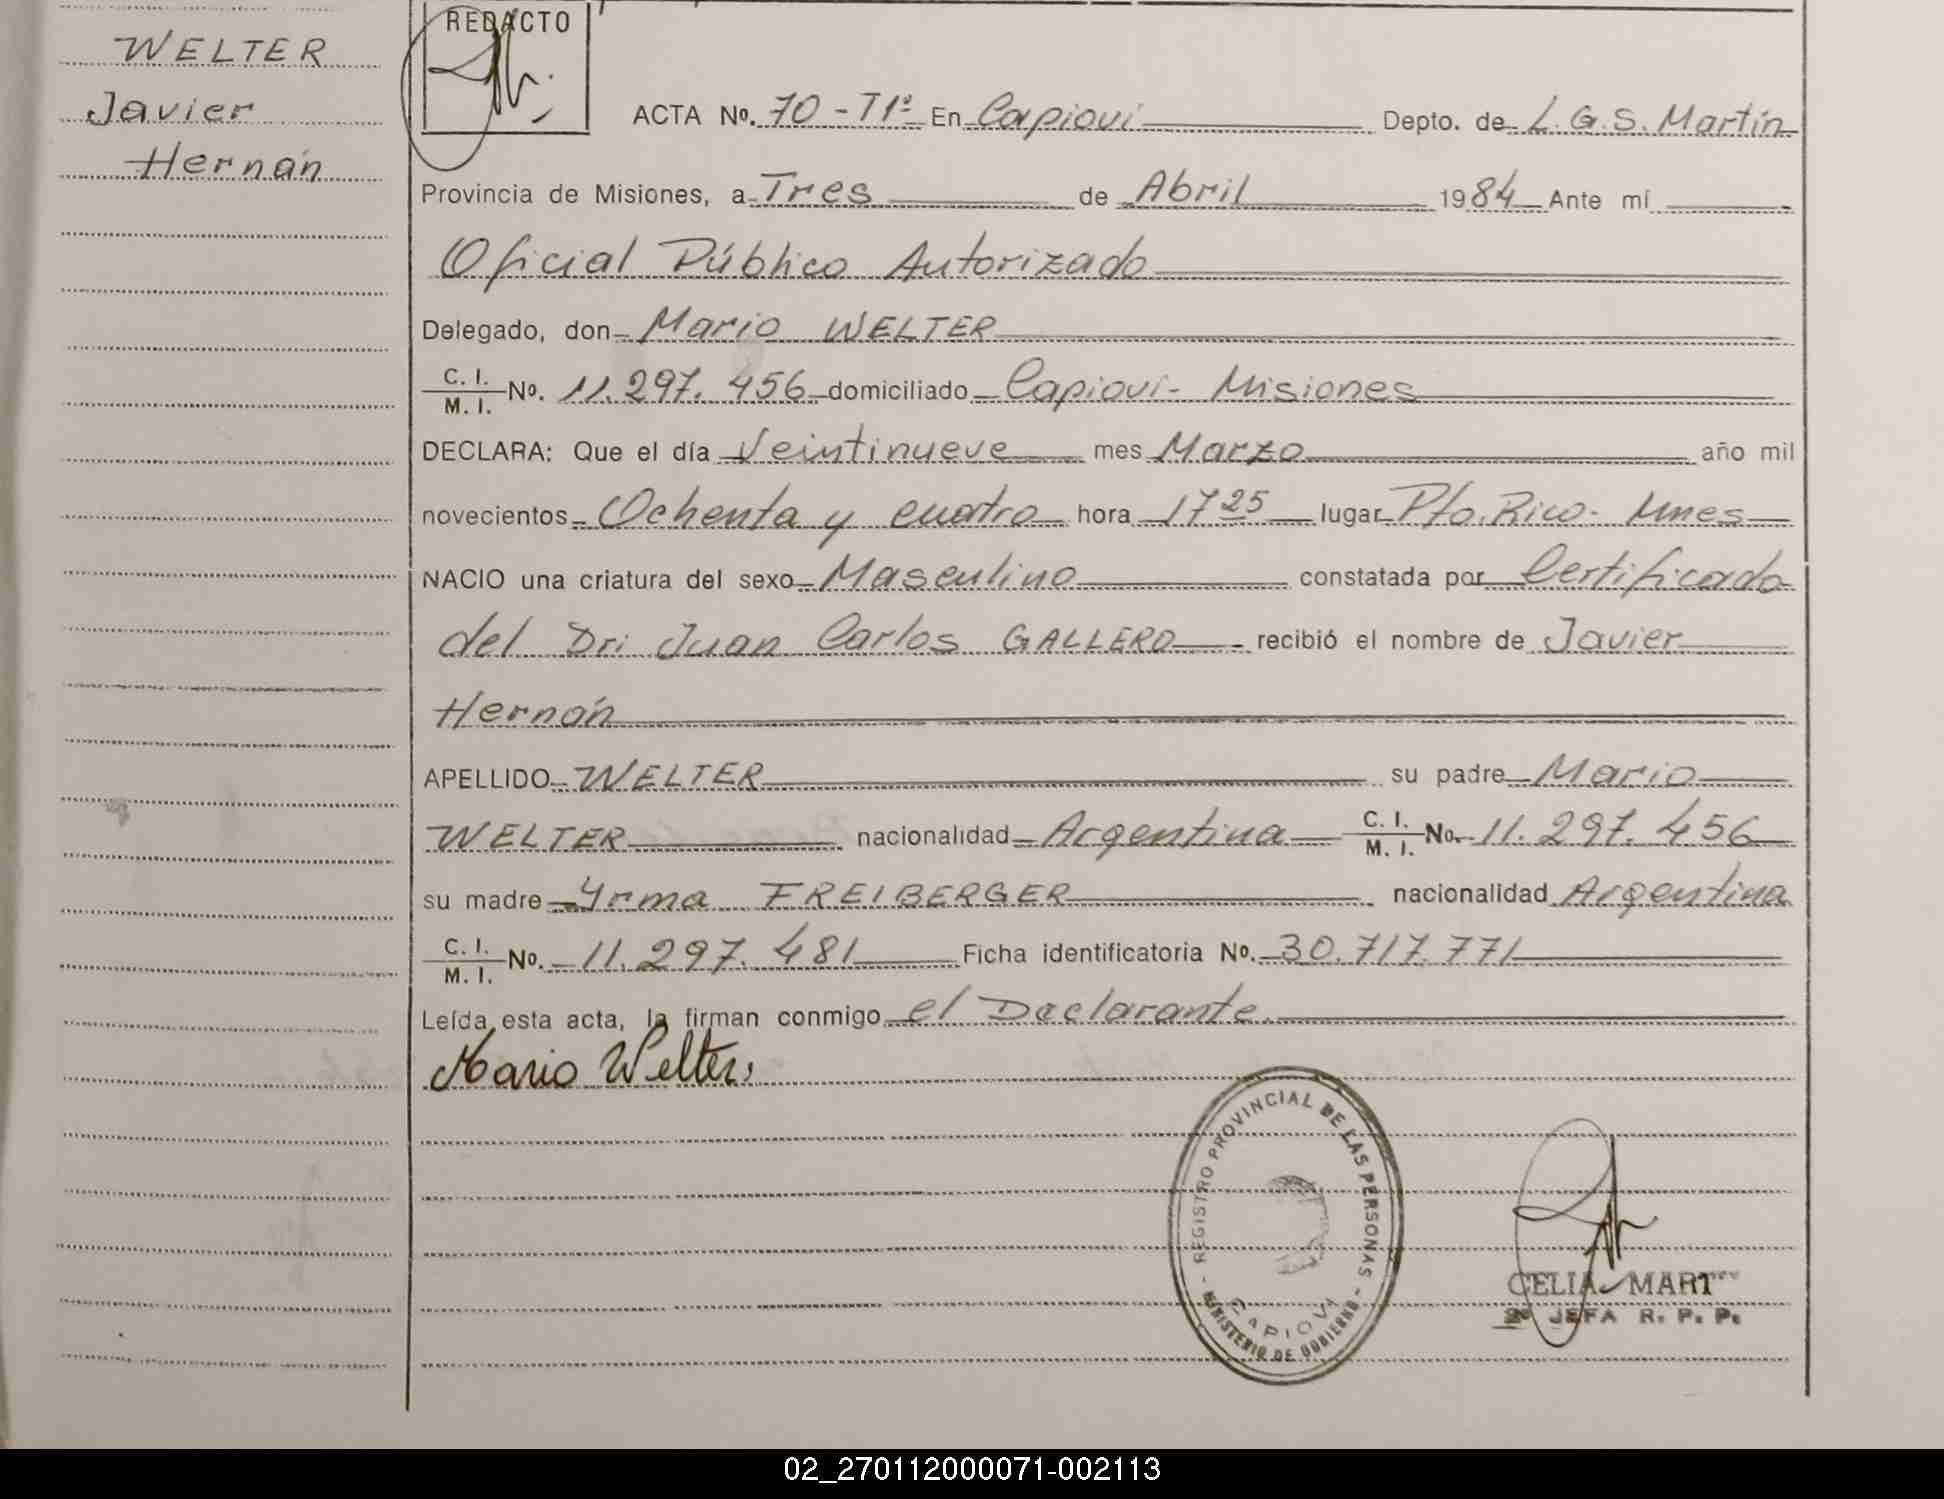 WELTER
Javier
Hernán
REDACTO
ACTA No. 70 - T1º En Capioví Depto. de L. G. S. Martín
Provincia de Misiones, a Tres de Abril 1984 Ante mí
Oficial Público Autorizado
Delegado, don Mario WELTER
C. I.
M. I. No. 11.297.456 domiciliado Capioví - Misiones
DECLARA: Que el día Veintinueve mes Marzo año mil
novecientos Ochenta y cuatro hora 17 25 lugar Pto. Rico - Mnes
NACIO una criatura del sexo Masculino constatada por Certificado
del Dr: Juan Carlos GALLERO recibió el nombre de Javier
Hernán
APELLIDO WELTER su padre Mario
WELTER nacionalidad Argentina C. I.
M. I. No. 11.297.456
su madre Yrma FREIBERGER nacionalidad Argentina
C. I.
M. I. No. 11.297.481 Ficha identificatoria No. 30.717.771
Leída esta acta, la firman conmigo el Declarante
Mario Welter
- REGISTRO PROVINCIAL DE LAS PERSONAS -
CAPIOVI
MINISTERIO DE GOBIERNO
CELIA MART
2º JEFA R. P. P.
02_270112000071-002113